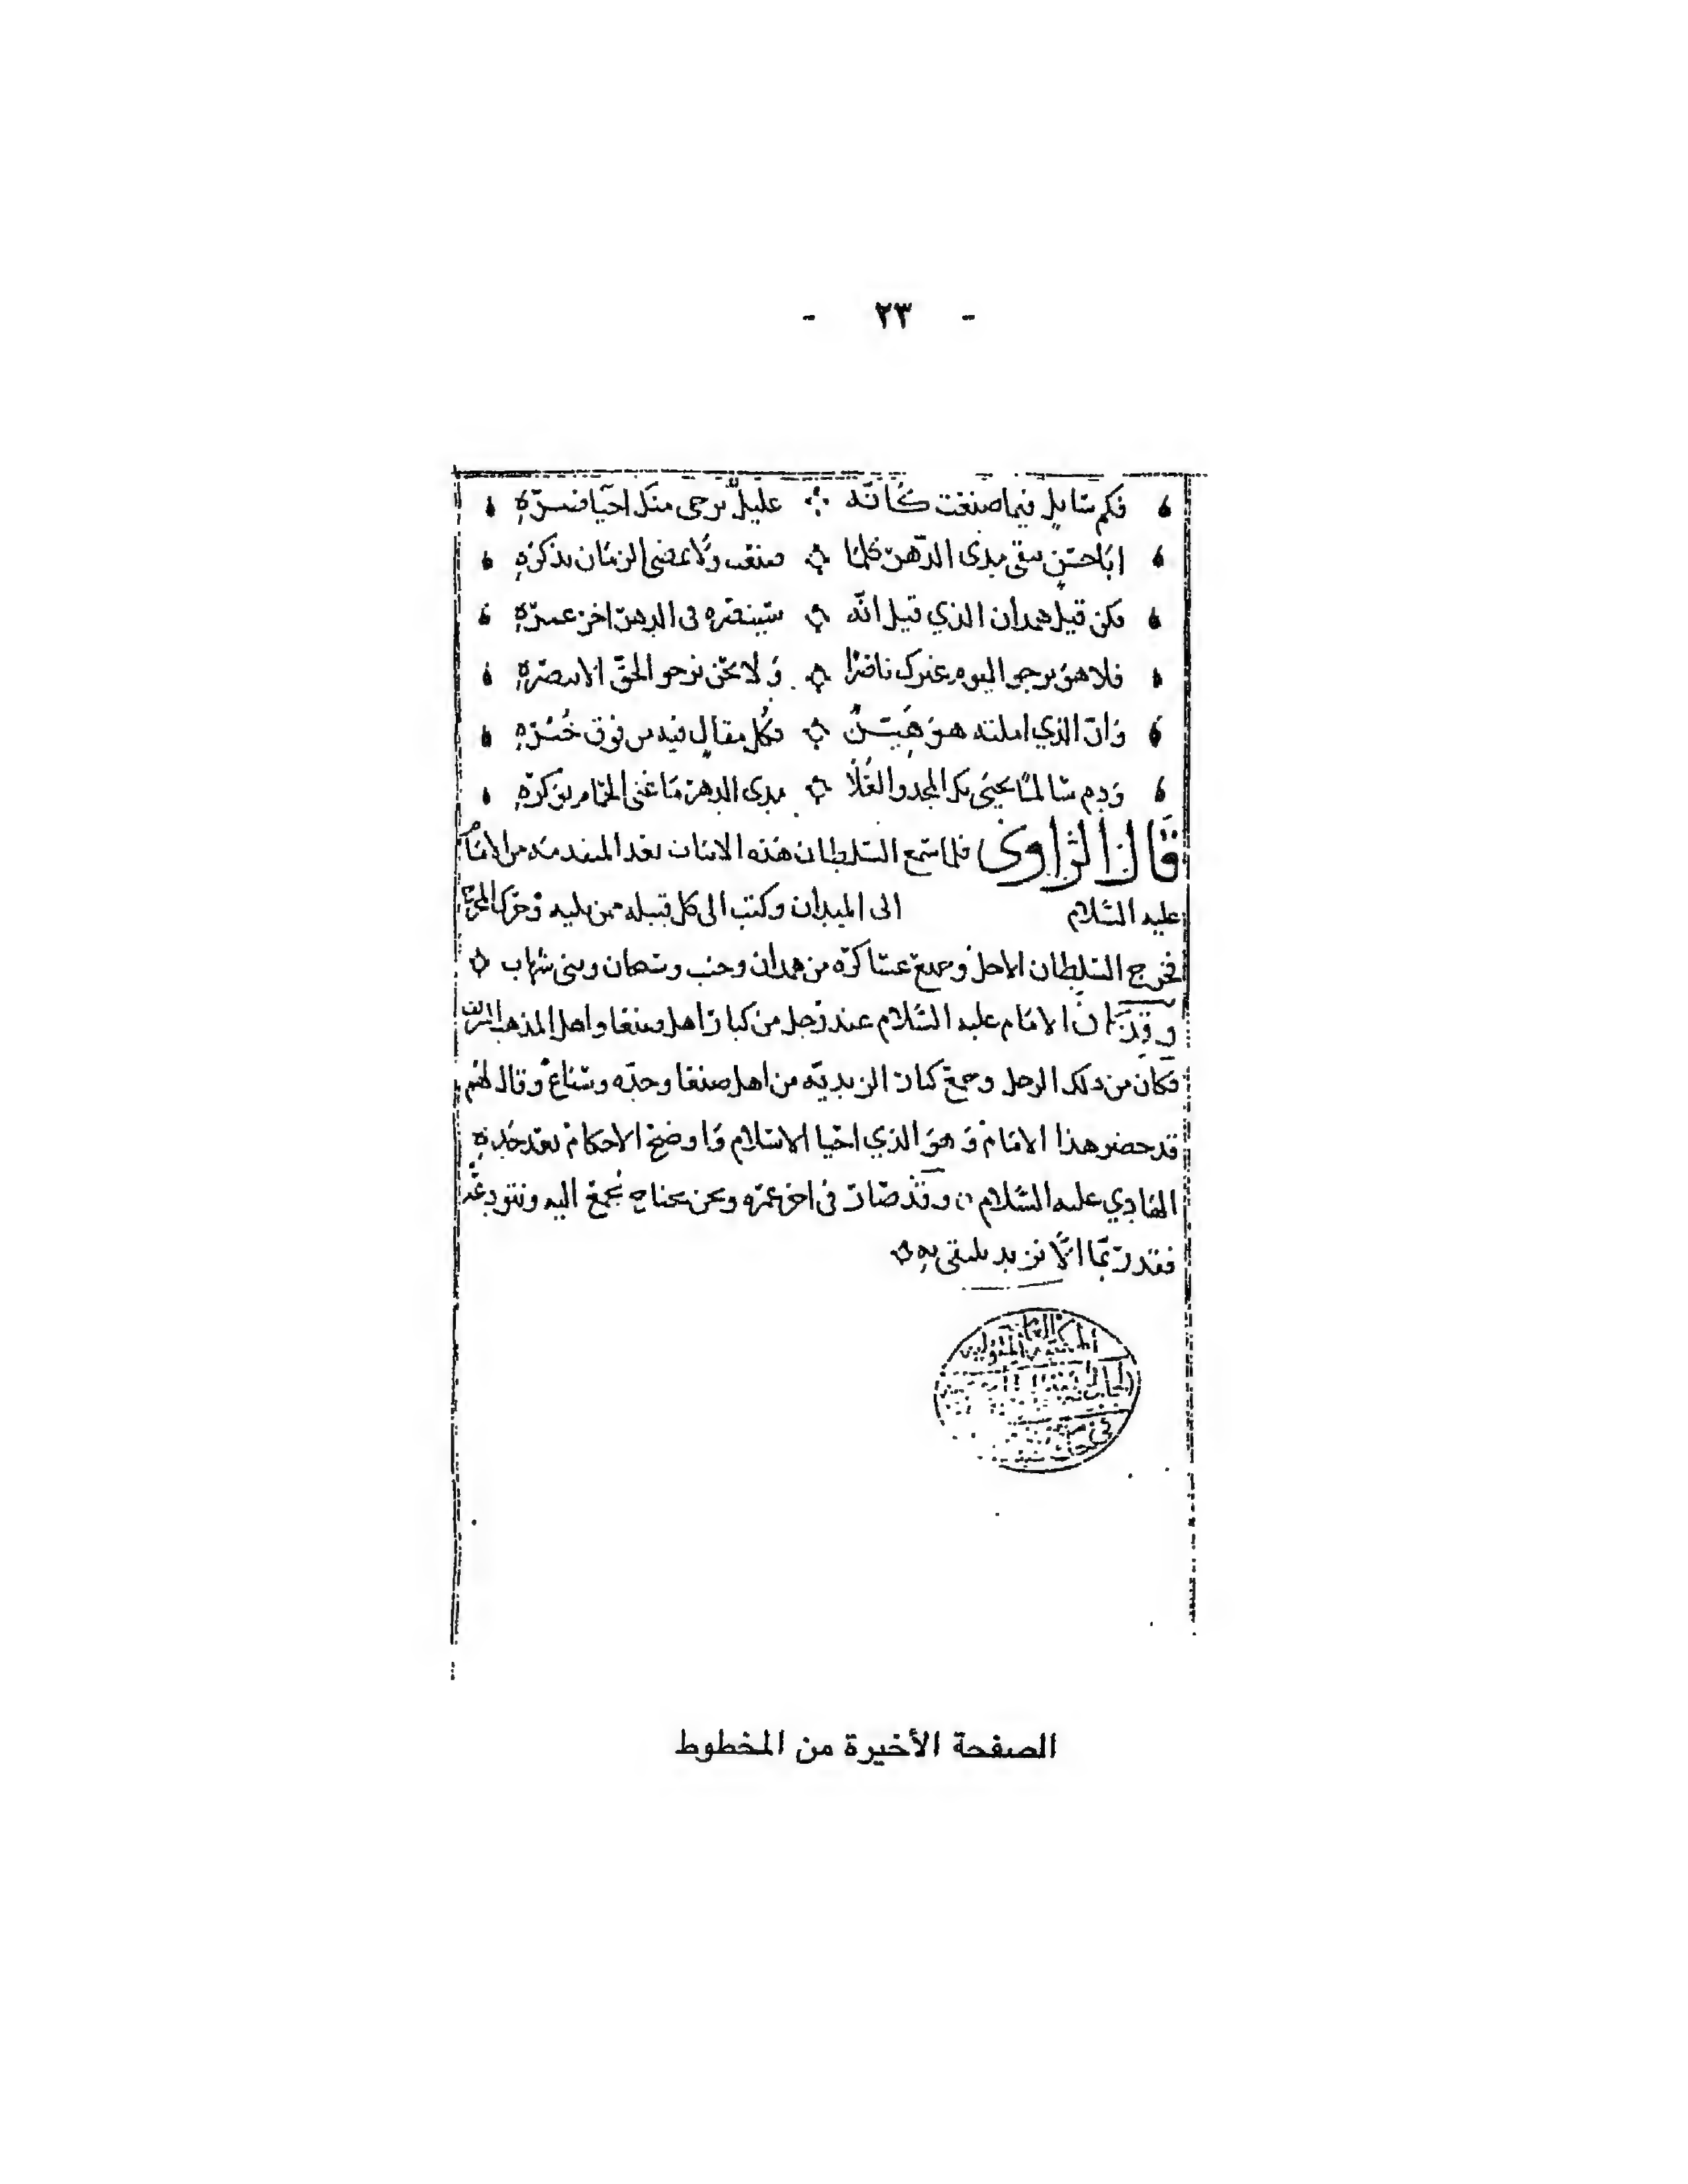 - ٢٣ -
فكم سايل فيما صنعت كأنه ∴ عليل يرجى منك احيا
ابا حسن مدى الدهر كلما ◇ الزمان بذكره
فكن قيل همدان الذي قيل انه ◇ في الدهر اخر عمره
فلا هو يرجو اليوم غيرك ناصرا ◇ ولا نحن نرجو الحق الا بنصره
وان الذي املته هو هين ◇ فكل مقال فيه من فوق
ودم سالما يحيى بك المجد والعلا ◇ مدى الدهر ما غنى الحمام بوكره
قال الراوي فلما سمع السلطان هذه الابيات بعد المتقدمة من الامام
عليه السلام الى الميدان وكتب الى كل قبيله ممن يليه
فخرج السلطان الاجل وجميع عساكره من همدان وجنب وسنحان وبني شهاب ◇
وقد كان الامام عليه السلام عند رجل من كبار اهل صنعا واهل المذهب الشريف
فكان من ذلك الرجل وجمع كبار الزيدية من اهل صنعا وحده وسناع وقال لهم
قد حضر هذا الامام وهو الذي احيا الاسلام واوضح الاحكام بعد جده
الهادي عليه السلام وقد صار في اخر عمره ونحن نحتاج نجمع اليه ونتودعه
فقد ربما الا نزيد نلتقي به ◇
الصفحة الأخيرة من المخطوط